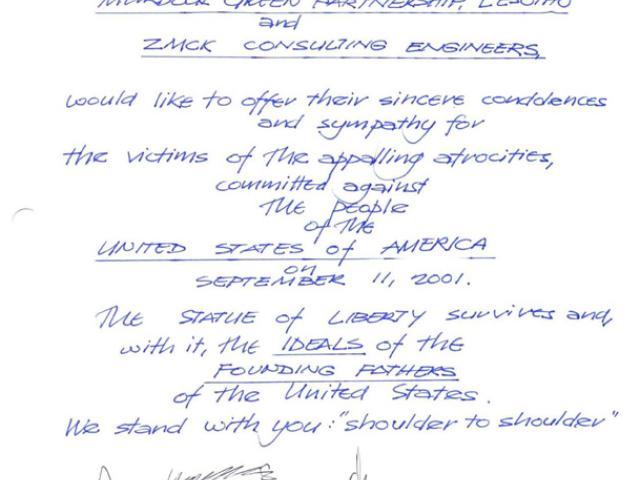 MURDOCK GREEN PARTNERSHIP, LESOTHO
and
ZMCK CONSULTING ENGINEERS,
would like to offer their sincere condolences
and sympathy for
the victims of the appalling atrocities,
committed against
the people
of the
UNITED STATES of AMERICA
on
SEPTEMBER 11, 2001.
The STATUE of LIBERTY survives and,
with it, the IDEALS of the
FOUNDING FATHERS
of the United States.
We stand with you: "shoulder to shoulder"